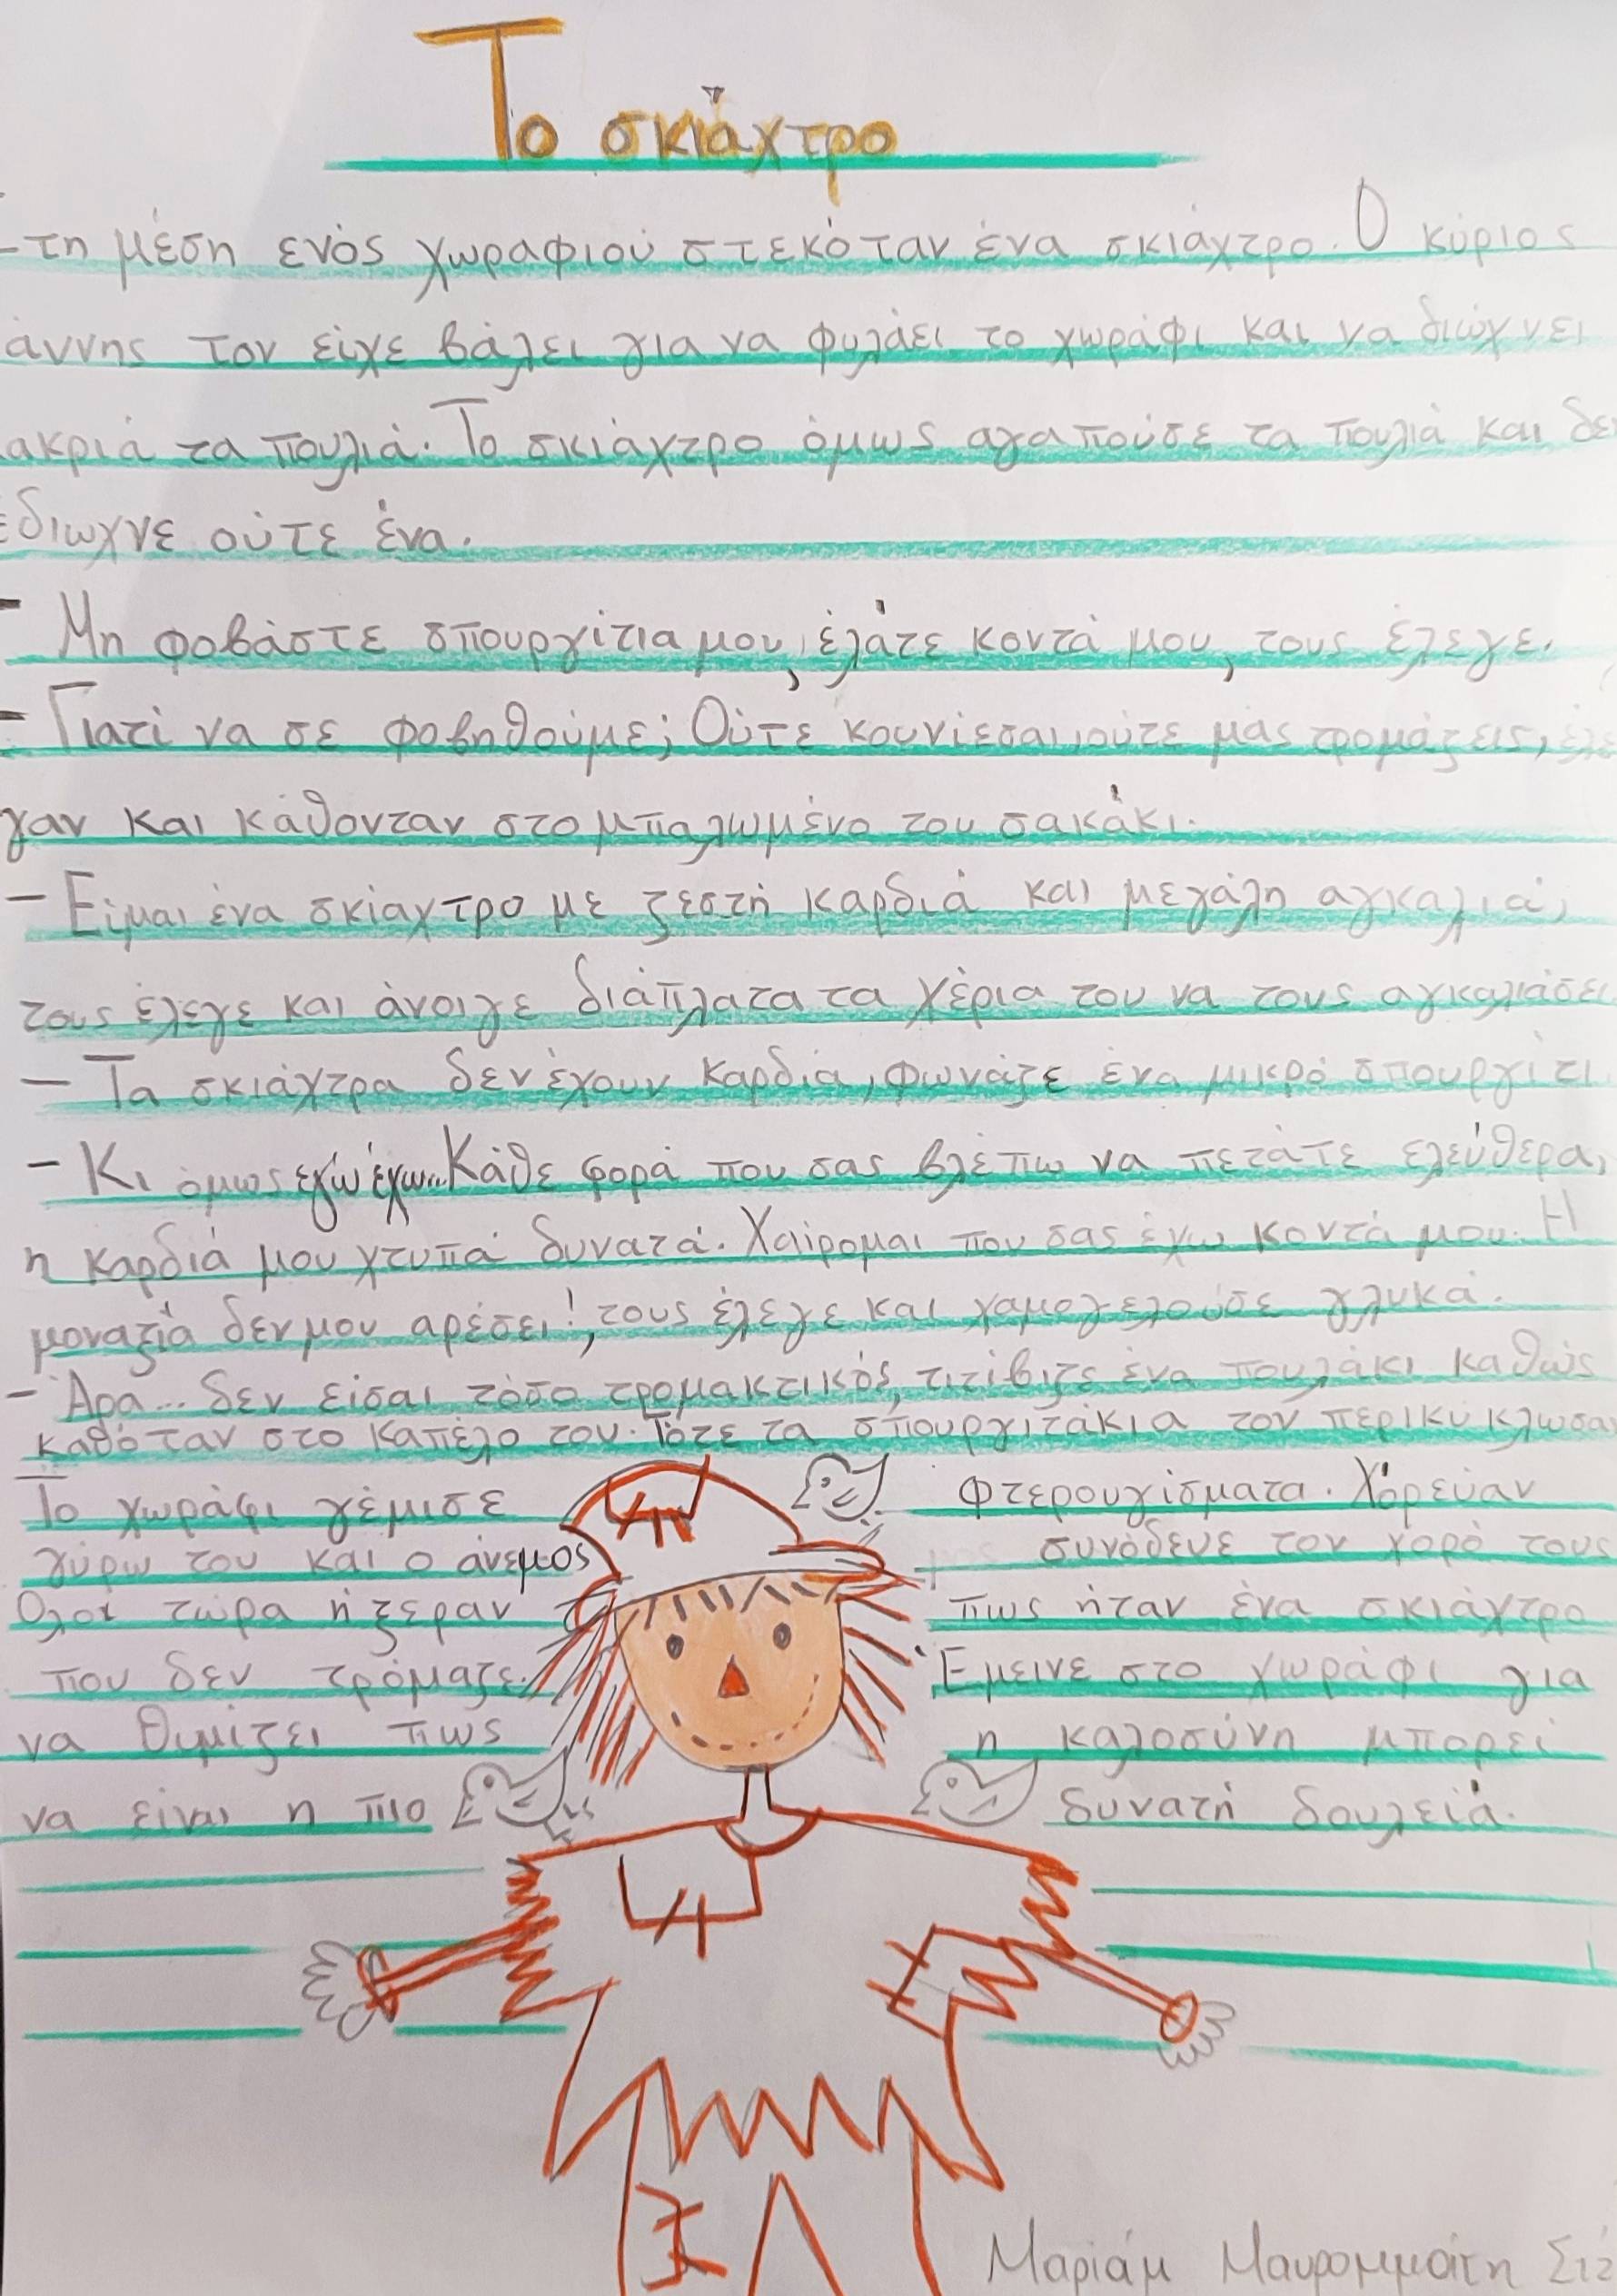 Το σκιάχτρο
τη μέση ενός χωραφιού στεκόταν ένα σκιάχτρο. Ο κύριος
άννης τον είχε βάλει για να φυλάει το χωράφι και να διώχνει
ακριά τα πουλιά. Το σκιάχτρο όμως αγαπούσε τα πουλιά και δεν
έδιωχνε ούτε ένα.
- Μη φοβάστε σπουργίτια μου, ελάτε κοντά μου, τους έλεγε.
- Γιατί να σε φοβηθούμε; Ούτε κουνιέσαι, ούτε μας τρομάζεις, έλε
γαν και κάθονταν στο μπαλωμένο του σακάκι.
- Είμαι ένα σκίαχτρο με ζεστή καρδιά και μεγάλη αγκαλιά,
τους έλεγε και άνοιγε διάπλατα τα χέρια του να τους αγκαλιάσει
- Τα σκιάχτρα δεν έχουν καρδιά, φώναξε ένα μικρό σπουργίτι
- Κι όμως εγώ έχω... Κάθε φορά που σας βλέπω να πετάτε ελεύθερα,
η καρδιά μου χτυπά δυνατά. Χαίρομαι που σας έχω κοντά μου. Η
μοναξιά δεν μου αρέσει!, τους έλεγε και χαμογελούσε γλυκά.
- Άρα... δεν είσαι τόσο τρομακτικός, τιτίβιζε ένα πουλάκι καθώς
καθόταν στο καπέλο του. Τότε τα σπουργιτάκια τον περικύκλωσαν
Το χωράφι γέμισε φτερουγίσματα. Χόρευαν
γύρω του και ο άνεμος συνόδευε τον χορό τους
Όλοι τώρα ήξεραν πως ήταν ένα σκιάχτρο
που δεν τρόμαζε. Έμεινε στο χωράφι για
να θυμίζει πως η καλοσύνη μπορεί
να είναι η πιο δυνατή δουλειά.
Μαριάμ Μαυρομμάτη Στ2